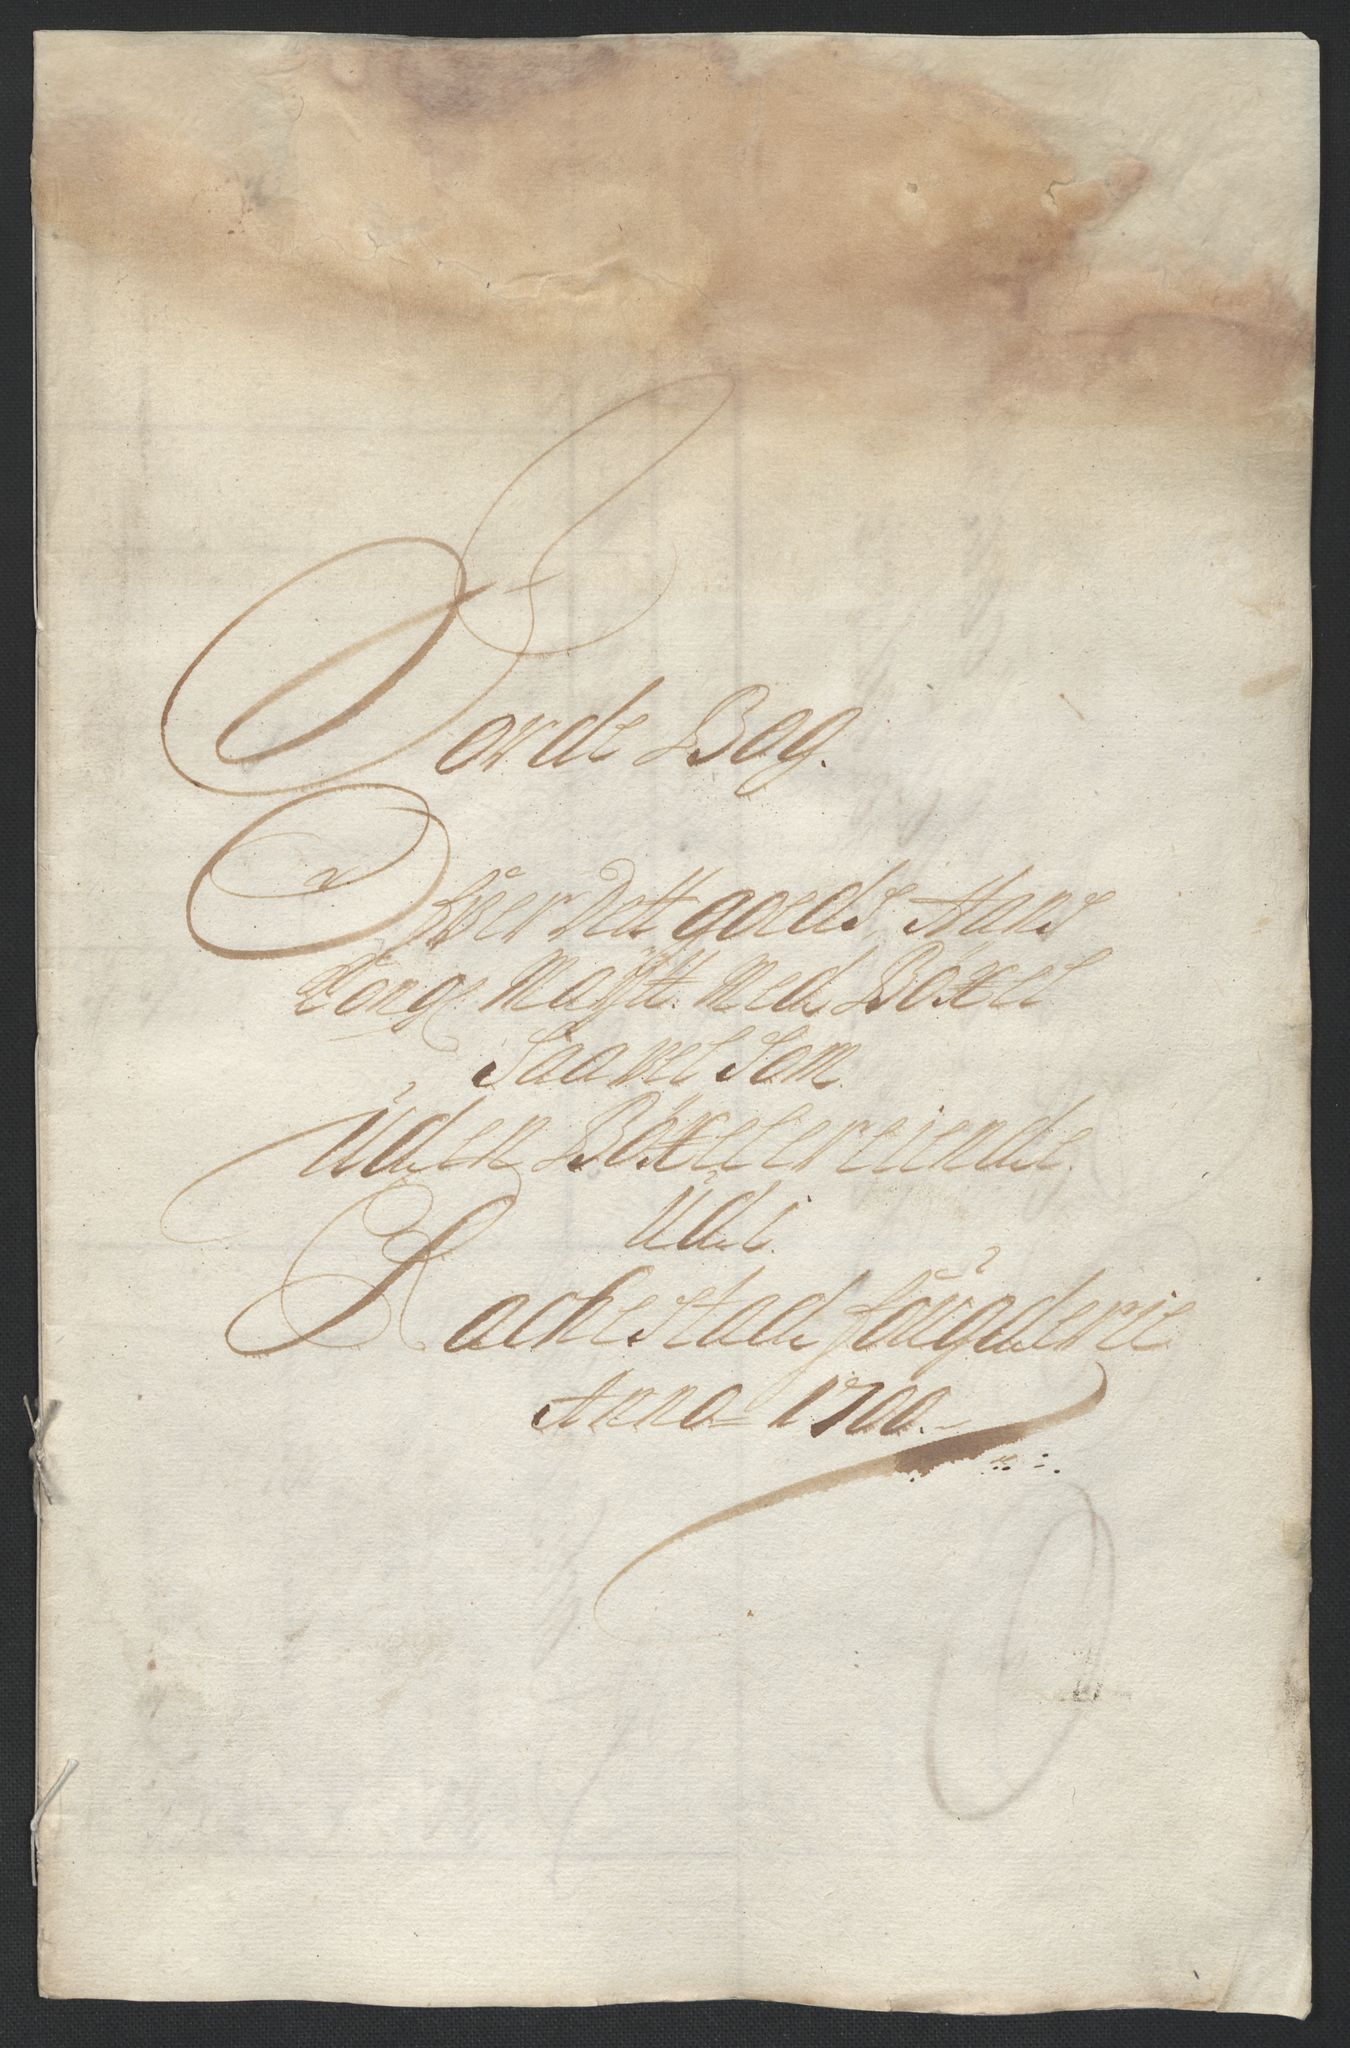 Jorde Bog.
Ofver Dett goeds, Hans
Kong: Maÿtt: Med Böxel
Saavel Som
Uden Böxel ereiende.
Udi
Rachestad foügderie
Anno 1700.